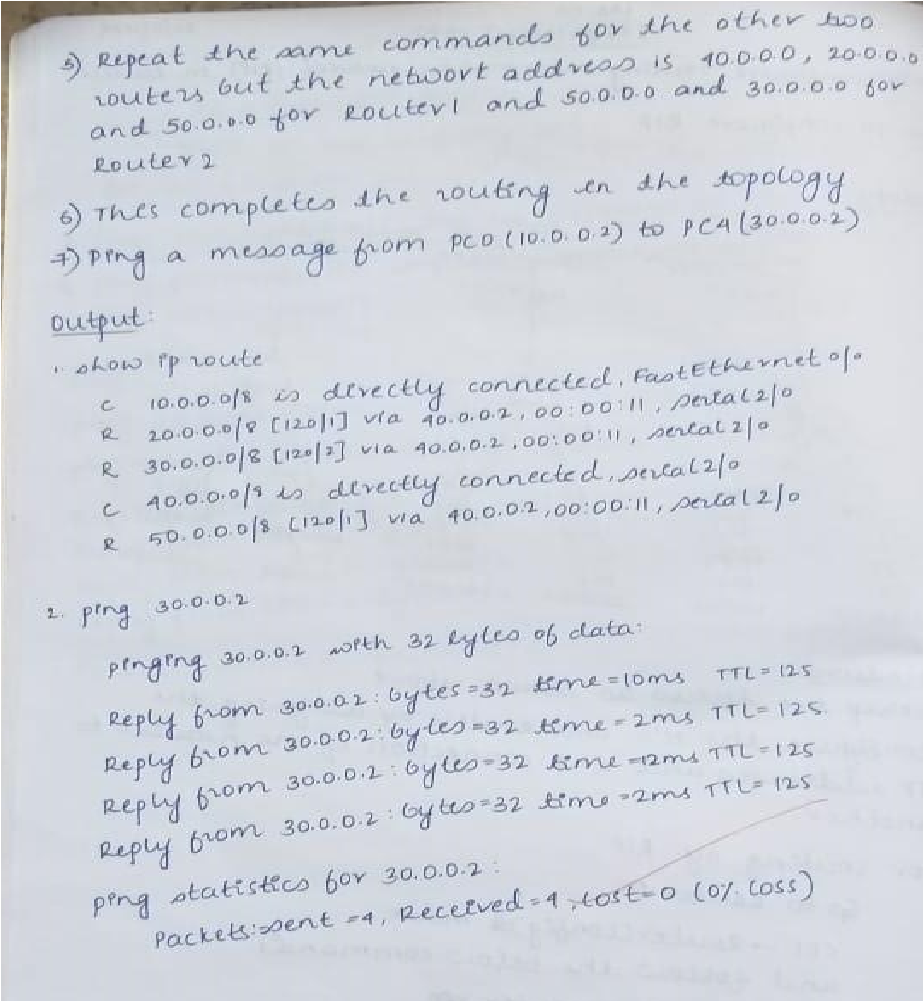 5) Repeat the same commands for the other two
routers but the network address is 40.0.0.0, 20.0.0.0
and 50.0.0.0 for Router1 and 50.0.0.0 and 30.0.0.0 for
Router 2
6) This completes the routing in the topology
7) Ping a message from PC0 (10.0.0.2) to PC4 (30.0.0.2)
Output:
1. show ip route
C 10.0.0.0/8 is directly connected, FastEthernet 0/0
R 20.0.0.0/8 [120/1] via 40.0.0.2, 00:00:11, serial 2/0
R 30.0.0.0/8 [120/2] via 40.0.0.2, 00:00:11, serial 2/0
C 40.0.0.0/8 is directly connected, serial 2/0
R 50.0.0.0/8 [120/1] via 40.0.0.2, 00:00:11, serial 2/0
2. ping 30.0.0.2
pinging 30.0.0.2 with 32 bytes of data:
Reply from 30.0.0.2: bytes=32 time=10ms TTL=125
Reply from 30.0.0.2: bytes=32 time=2ms TTL=125
Reply from 30.0.0.2: bytes=32 time=12ms TTL=125
Reply from 30.0.0.2: bytes=32 time=2ms TTL=125
ping statistics for 30.0.0.2:
Packets: sent=4, Received=4, lost=0 (0% loss)